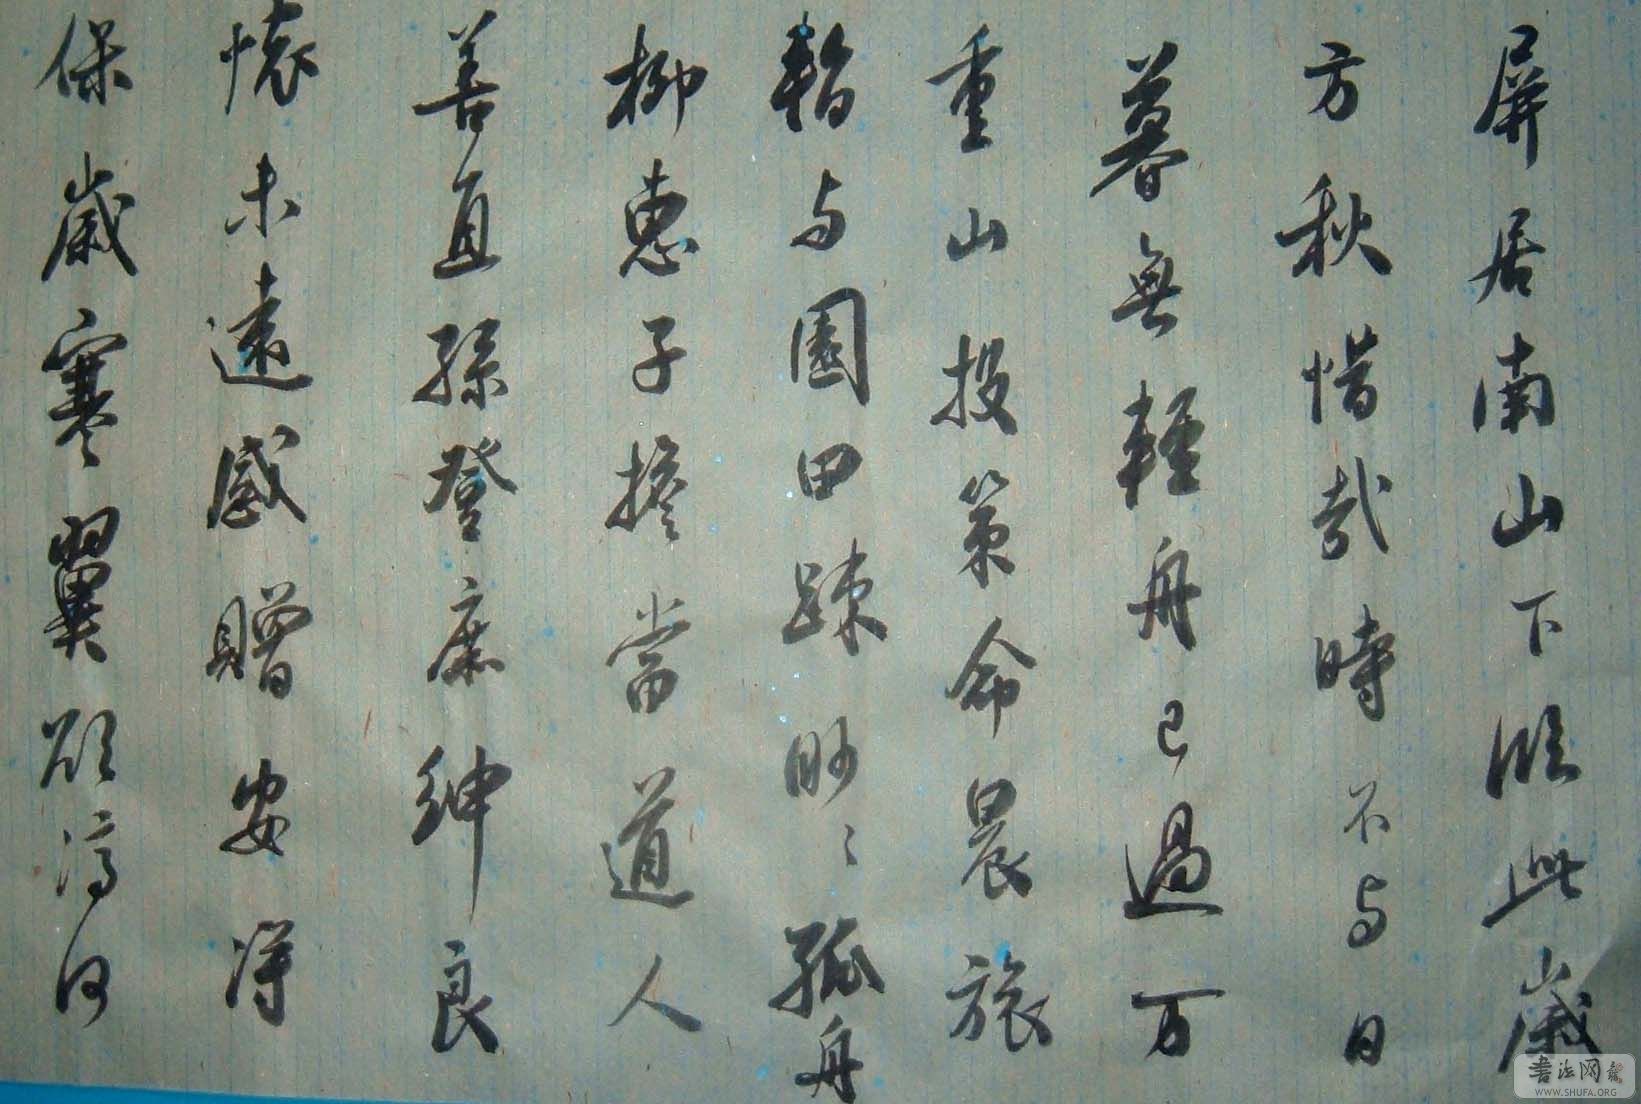 屏居南山下臨此歲
方秋惜哉時不与日
暮無輕舟已過万
重山投策命晨旅
暫与園田踈眇眇孤舟
柳惠子擔當道人
善直孫登庶紳良
懷未遠感贈安得
保歲寒翼顧何
書法网
WWW.SHUFA.ORG